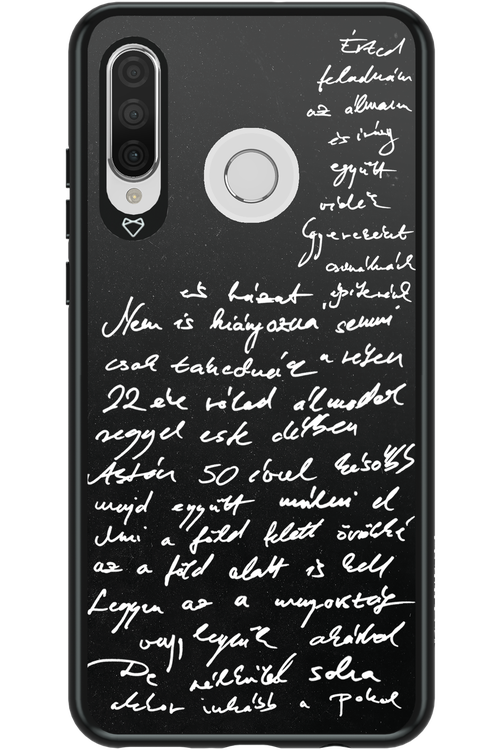 Érted
feladnám
az álmaim
és így
együtt
veled
Gyerekeket
csinálnék
és házat építenék
Nem is hiányozna semmi
csak takednék a réten
22 éve rólad álmodok
reggel este délben
Aztán 50 évvel később
majd együtt múlni el
Ami a föld felett örökké
az a föld alatt is kell
Legyen az a mennyország
vagy legyünk akárhol
De nélküled soha
akkor inkább a pokol